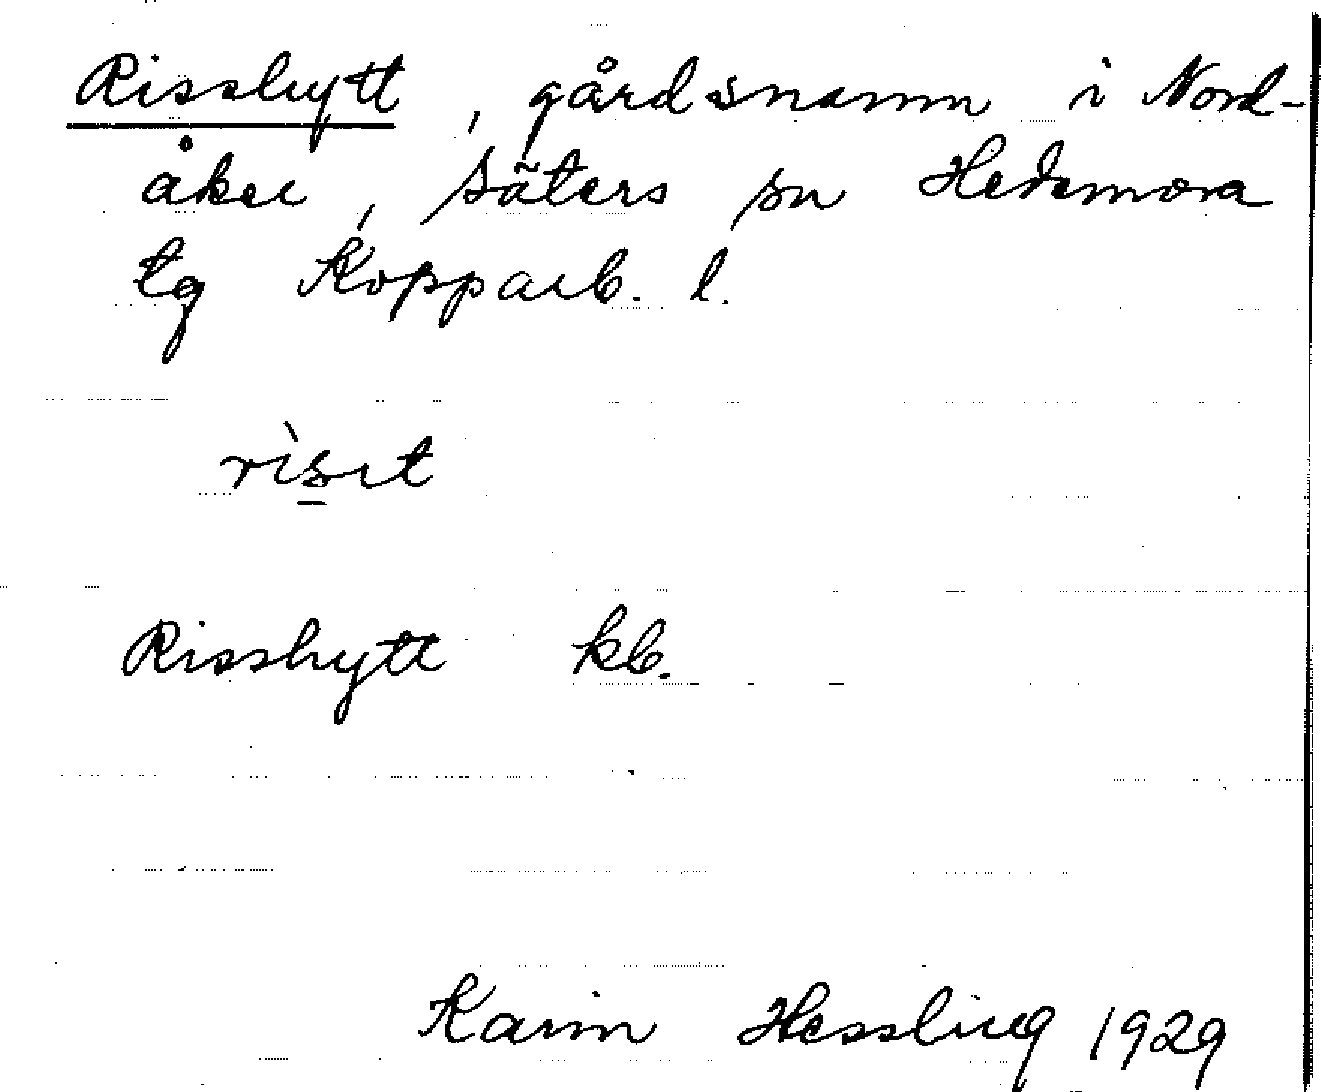 Risshytt, gårdsnamn i Nord-
åker, Säters sn Hedemora
tg Kopparb. l.
rìs̲ıt
Risshytt kb.
Karin Hessling 1929